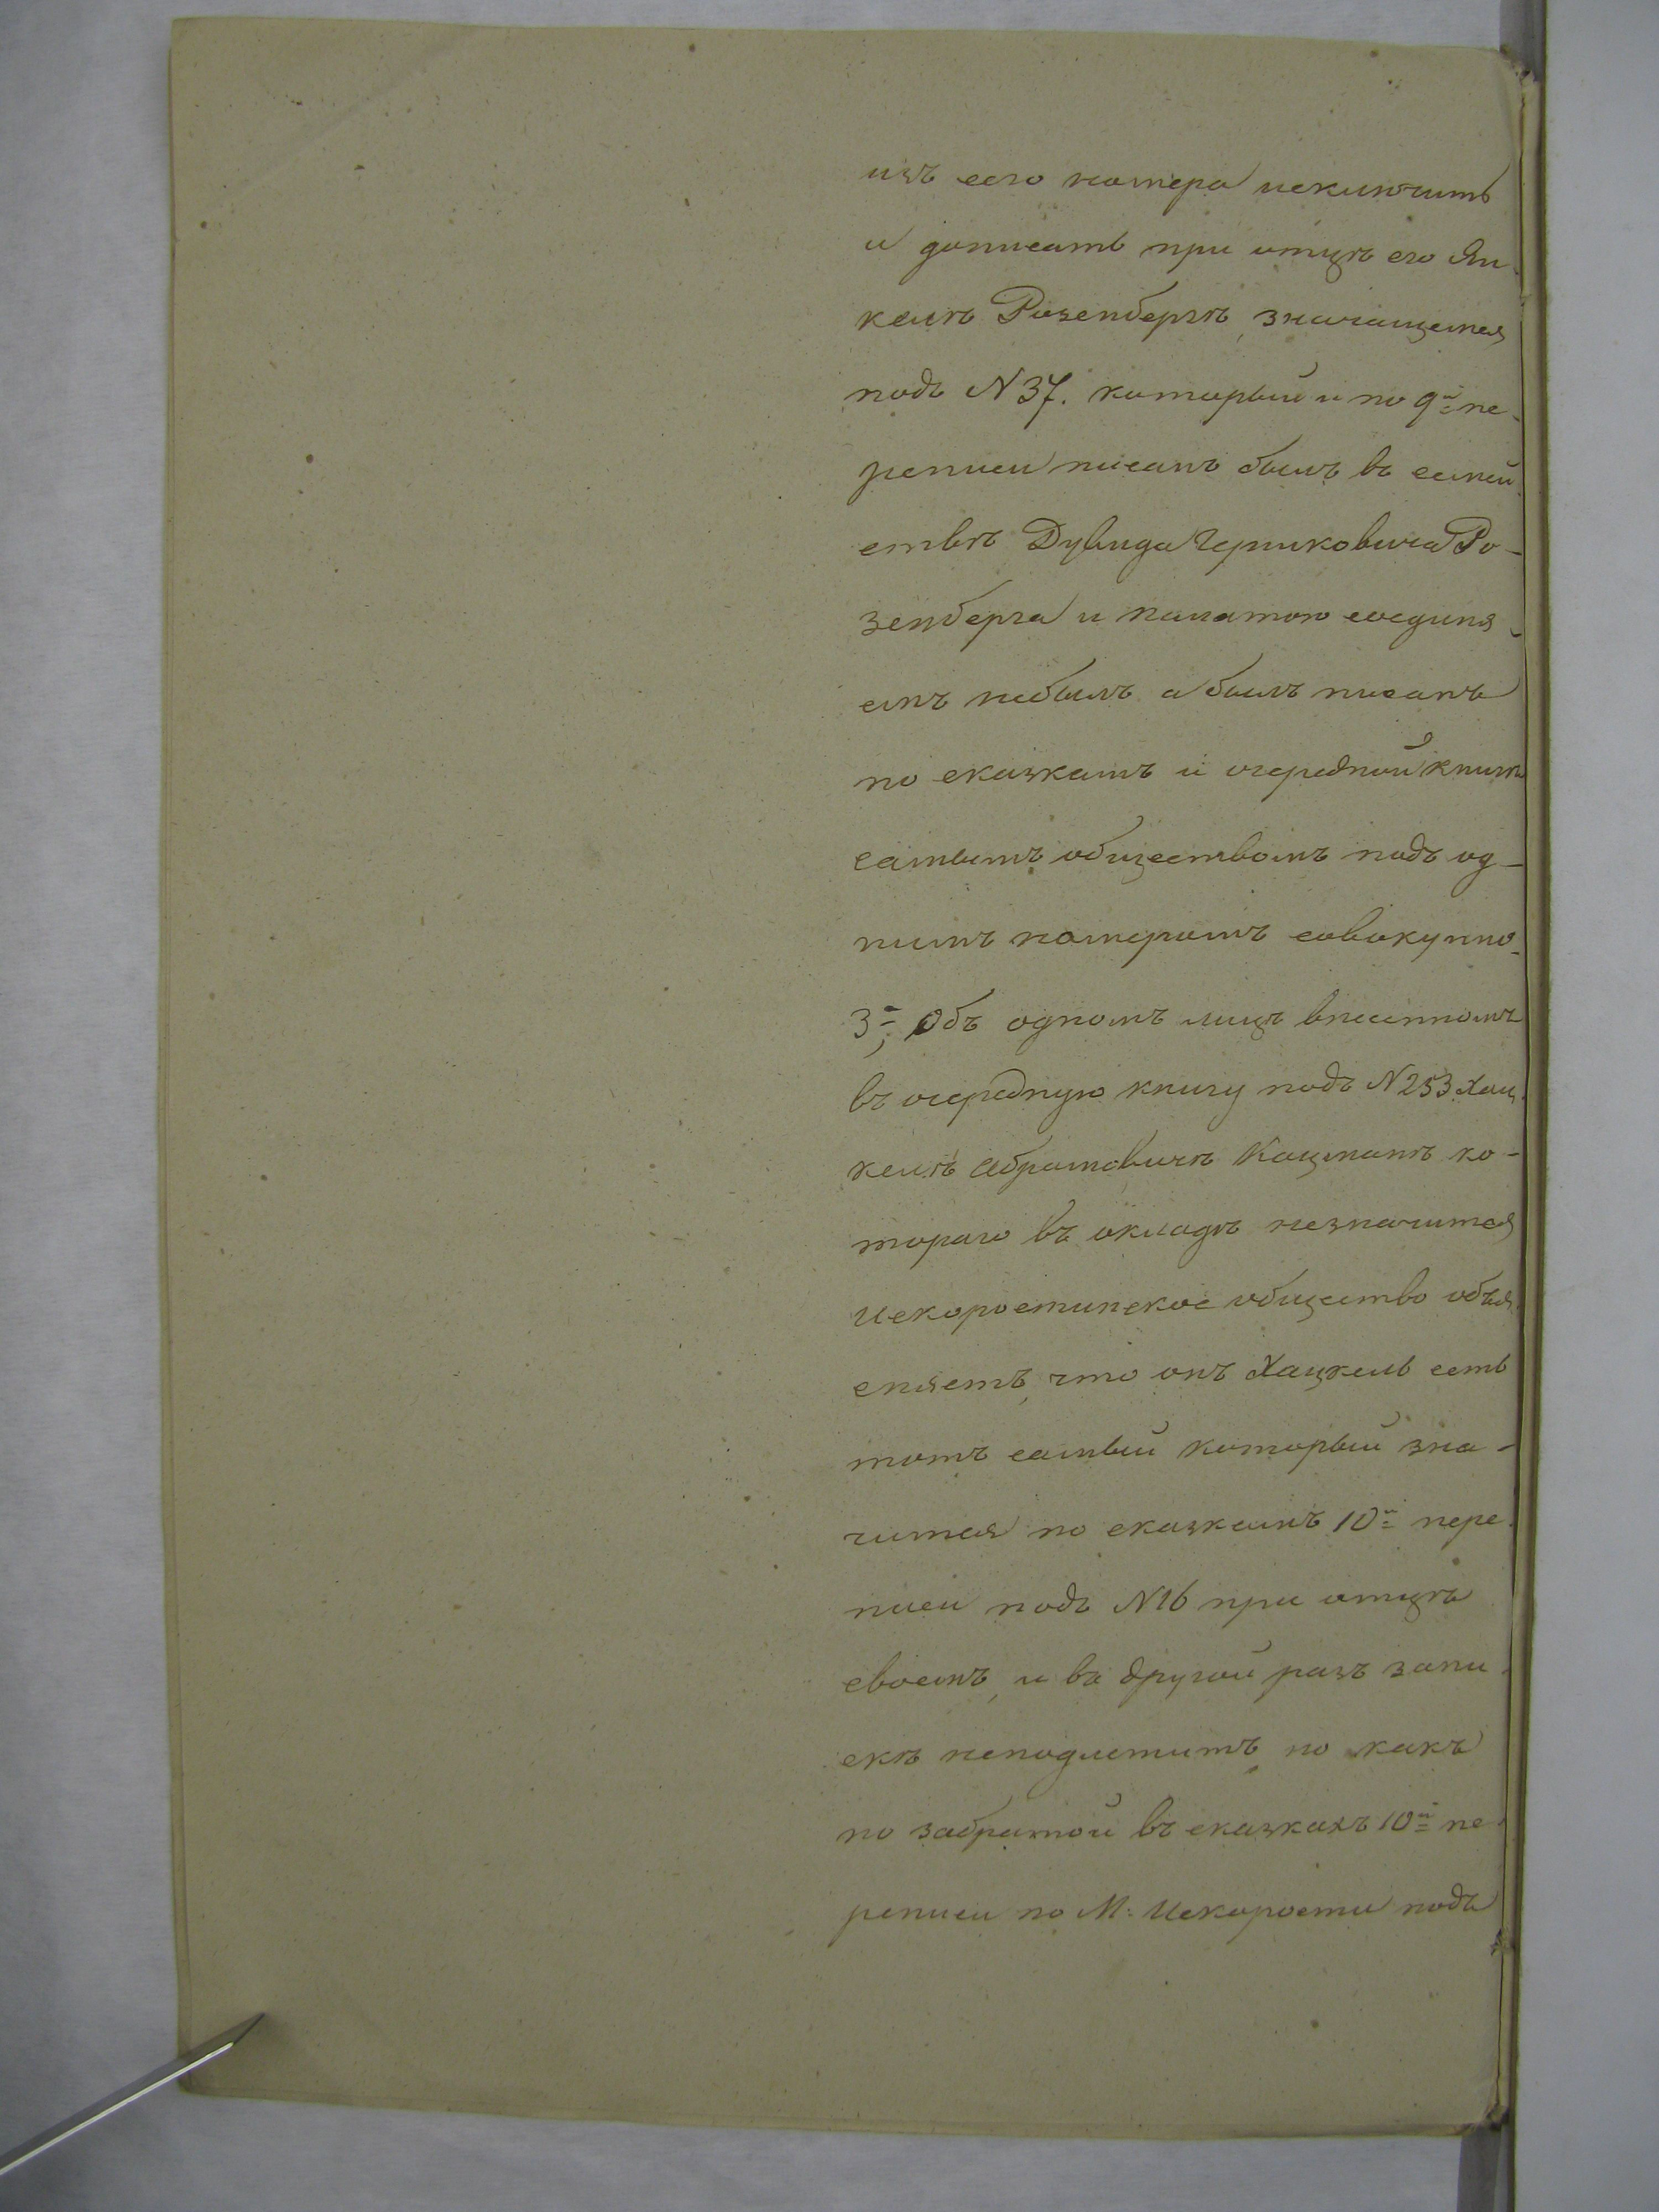 изъ сего номера исключить
и дописать при отцѣ его Ян-
келѣ Розенбергѣ, значащемся
подъ N 37. который и по 9й пе-
реписи писанъ былъ въ семей-
ствѣ Дувида Гершковича Ро-
зенберга и палатою соединя-
емъ небылъ а былъ писанъ
по сказкамъ и очередной книги
самымъ обществомъ подъ од-
нимъ номеромъ совокупно-
3=; Объ одномъ лицѣ внесенномъ
въ очередную книгу подъ N 253 Хац-
келѣ Абрамовичѣ Кацманѣ ко-
тораго въ окладѣ незначится
Искоростинское общество объя-
сняетъ, что онъ Хацкель есть
тотъ самый который зна-
чится по сказкамъ 10й пере-
писи подъ N 16 при отцѣ
своемъ, и въ другой разъ запи-
скѣ неподлежитъ, но какъ
по забратой въ сказкахъ 10й пе-
реписи по М: Искорости подъ